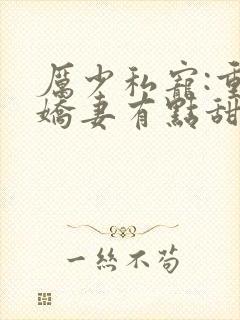 厲少私寵:重
嬌妻有點甜
一絲不苟